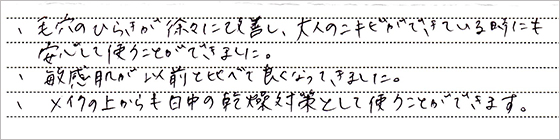 、毛穴のひらきが徐々に改善し、大人のニキビができている時にも
安心して使うことができました。
、敏感肌が以前と比べて良くなってきました。
、メイクの上からも日中の乾燥対策として使うことができます。